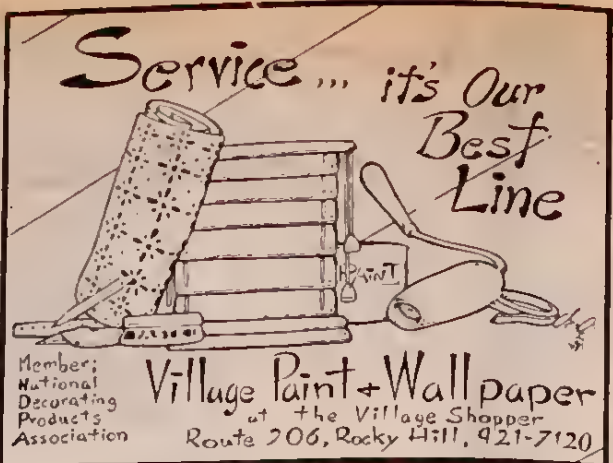 Service... it's Our
Best
Line
PAINT
Member:
National
Decorating
Products
Association
Village Paint + Wallpaper
at the Village Shopper
Route 206, Rocky Hill, 921-7120